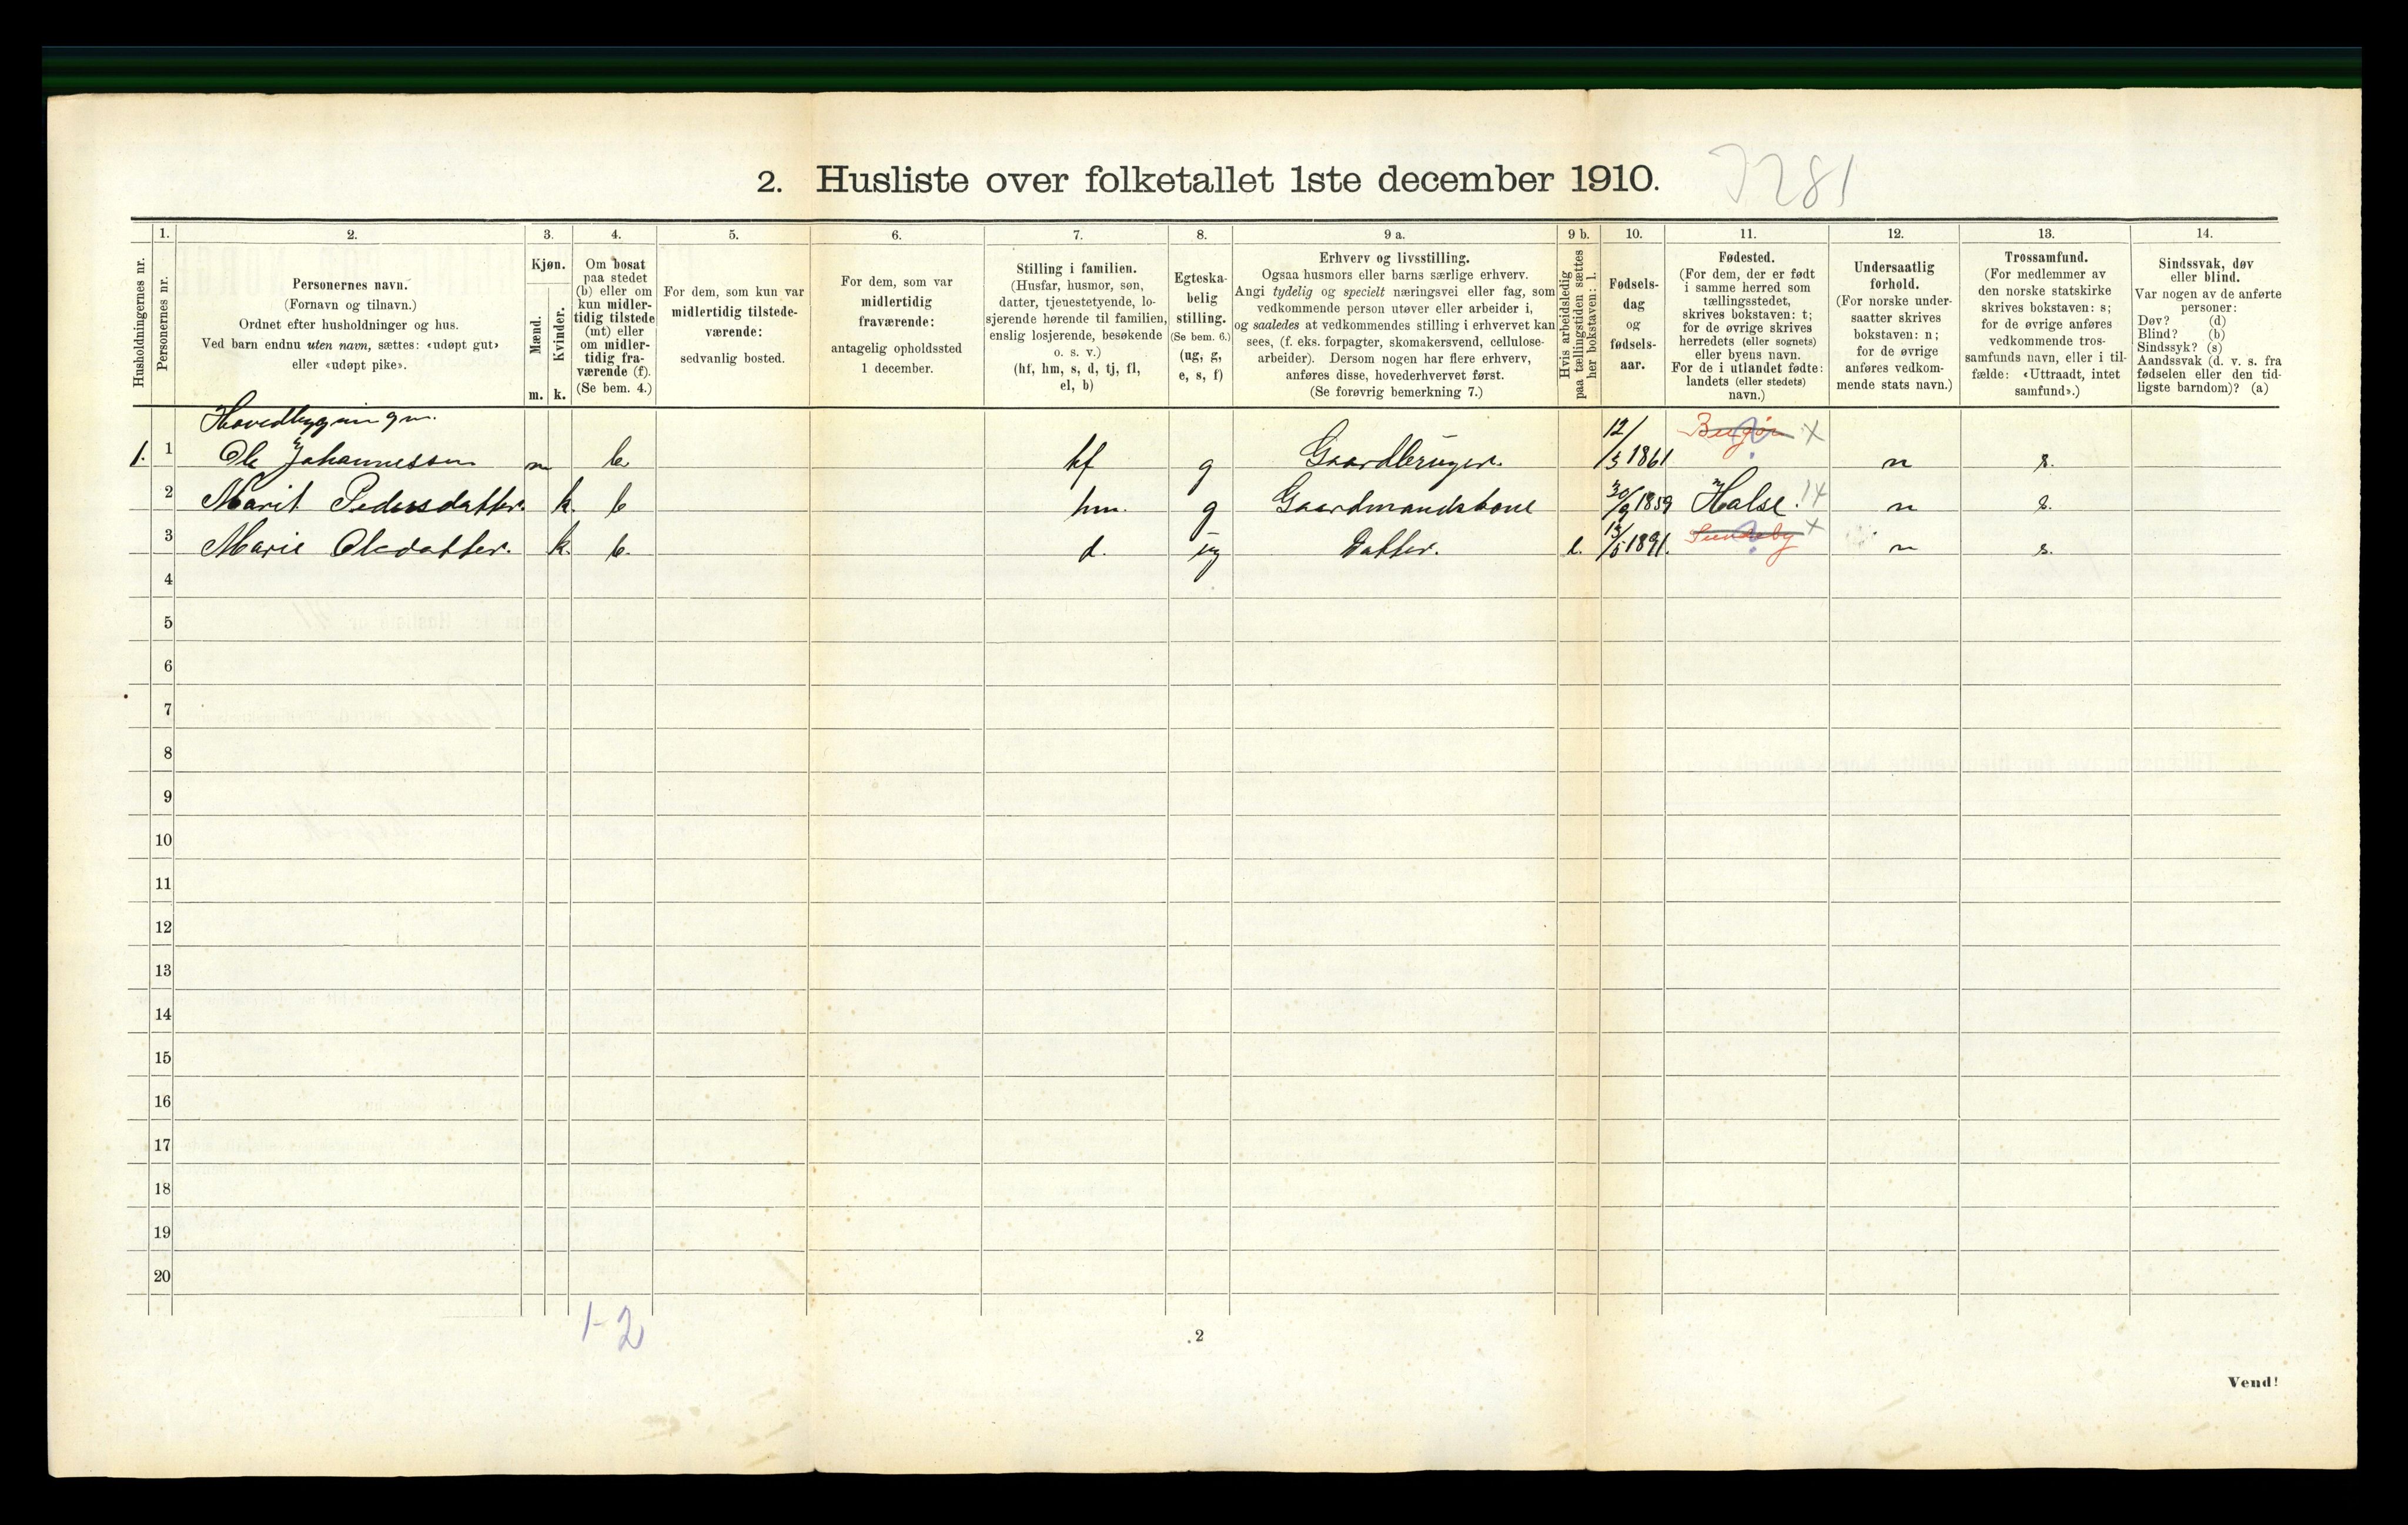 2. Husliste over folketallet 1ste december 1910.
Husholdningernes nr.
1.
Personernes nr.
2.
Personernes navn.
(Fornavn og tilnavn.)
Ordnet efter husholdninger og hus.
Ved barn endnu uten navn, sættes: «udøpt gut»
eller «udøpt pike».
3.
Kjøn.
Mænd.
Kvinder.
m. k.
4.
Om bosat
paa stedet
(b) eller om
kun midler-
tidig tilstede
(mt) eller
om midler-
tidig fra-
værende (f).
(Se bem. 4.)
5.
For dem, som kun var
midlertidig tilstede-
værende:
sedvanlig bosted.
6.
For dem, som var
midlertidig
fraværende:
antagelig opholdssted
1 december.
7.
Stilling i familien.
(Husfar, husmor, søn,
datter, tjenestetyende, lo-
sjerende hørende til familien,
enslig losjerende, besøkende
o. s. v.)
(hf, hm, s, d, tj, fl,
el, b)
8.
Egteska-
belig
stilling.
(Se bem. 6.)
(ug, g,
e, s, f)
9 a.
Erhverv og livsstilling.
Ogsaa husmors eller barns særlige erhverv.
Angi tydelig og specielt næringsvei eller fag, som
vedkommende person utøver eller arbeider i,
og saaledes at vedkommendes stilling i erhvervet kan
sees, (f. eks. forpagter, skomakersvend, cellulose-
arbeider). Dersom nogen har flere erhverv,
anføres disse, hovederhvervet først.
(Se forøvrig bemerkning 7.)
9 b.
Hvis arbeidsledig
paa tællingstiden sættes
her bokstaven: l.
10.
Fødsels-
dag
og
fødsels-
aar.
11.
Fødested.
(For dem, der er født
i samme herred som
tællingsstedet,
skrives bokstaven: t;
for de øvrige skrives
herredets (eller sognets)
eller byens navn.
For de i utlandet fødte:
landets (eller stedets)
navn.)
12.
Undersaatlig
forhold.
(For norske under-
saatter skrives
bokstaven: n;
for de øvrige
anføres vedkom-
mende stats navn.)
13.
Trossamfund.
(For medlemmer av
den norske statskirke
skrives bokstaven: s;
for de øvrige anføres
vedkommende tros-
samfunds navn, eller i til-
fælde: «Uttraadt, intet
samfund».)
14.
Sindssvak, døv
eller blind.
Var nogen av de anførte
personer:
Døv? (d)
Blind? (b)
Sindssyk? (s)
Aandssvak (d. v. s. fra
fødselen eller den tid-
ligste barndom)? (a)
Hovedbygningen.
1. 1 Ole Johannessen m b. hf g Gaardbruger. 12/3 1861 n s.
2 Marit Pedersdatter. k. b hm. g Gaardmandskone 30/9 1859 Halse. n s.
3 Marie Olsdatter. k. b. d. ug Datter. l. 13/5 1891. n s.
4
5
6
7
8
9
10
11
12
13
14
15
16
17
18
19
20
1-2
2
Vend!